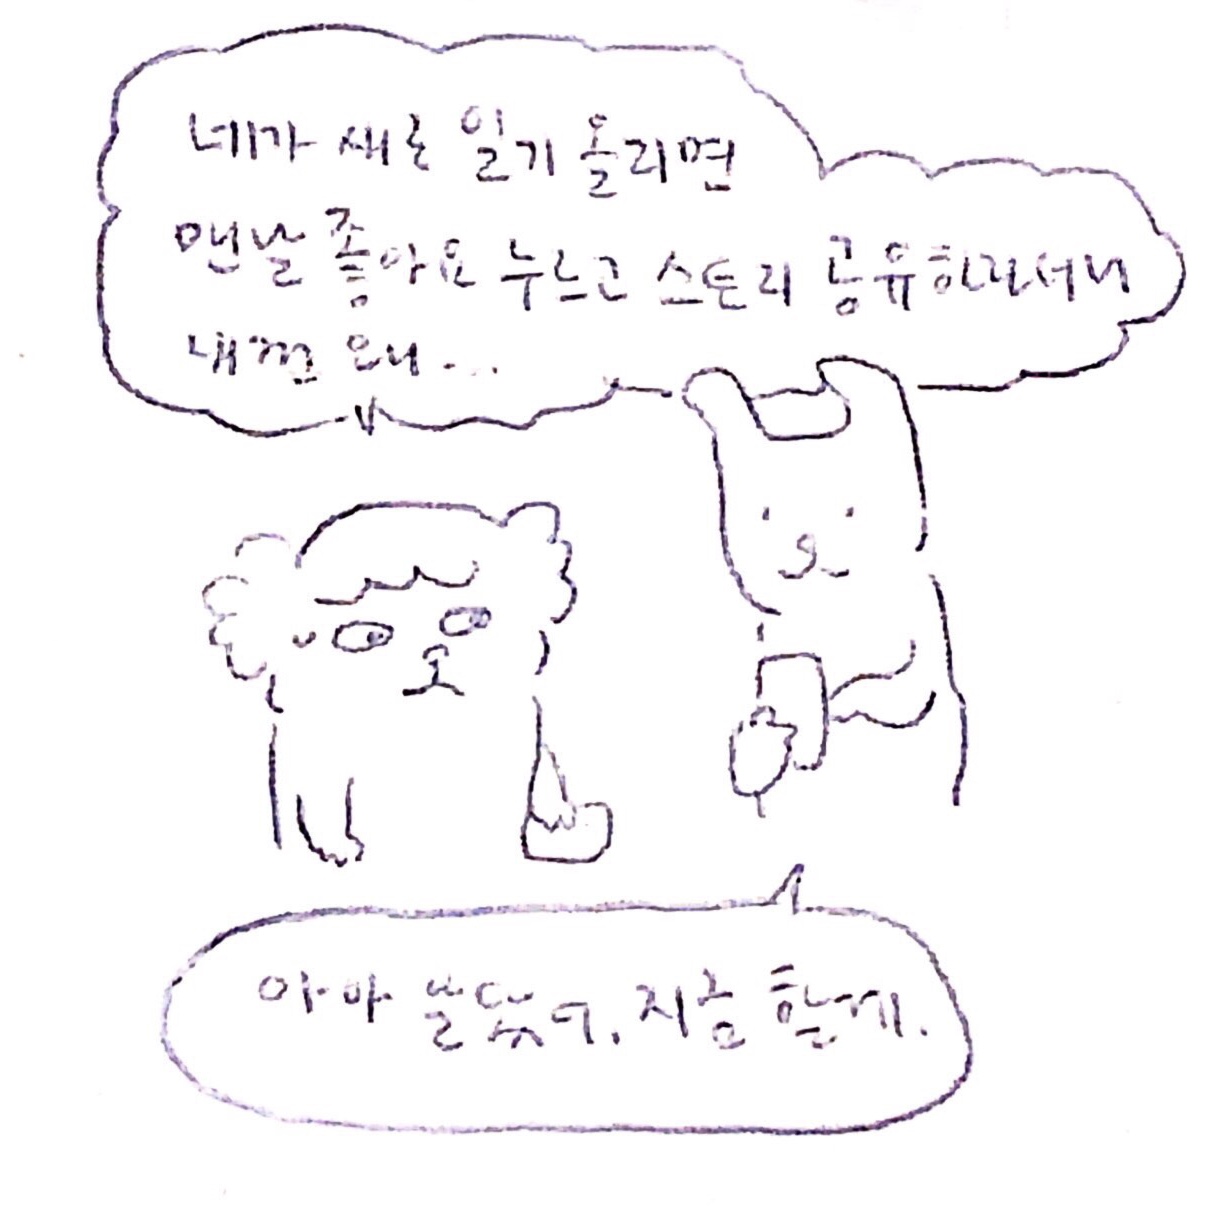 네가 새로 일기 올리면
맨날 좋아요 누르고 스토리 공유하라더니
내껀 왜...
아아 알았어. 지금 할게.